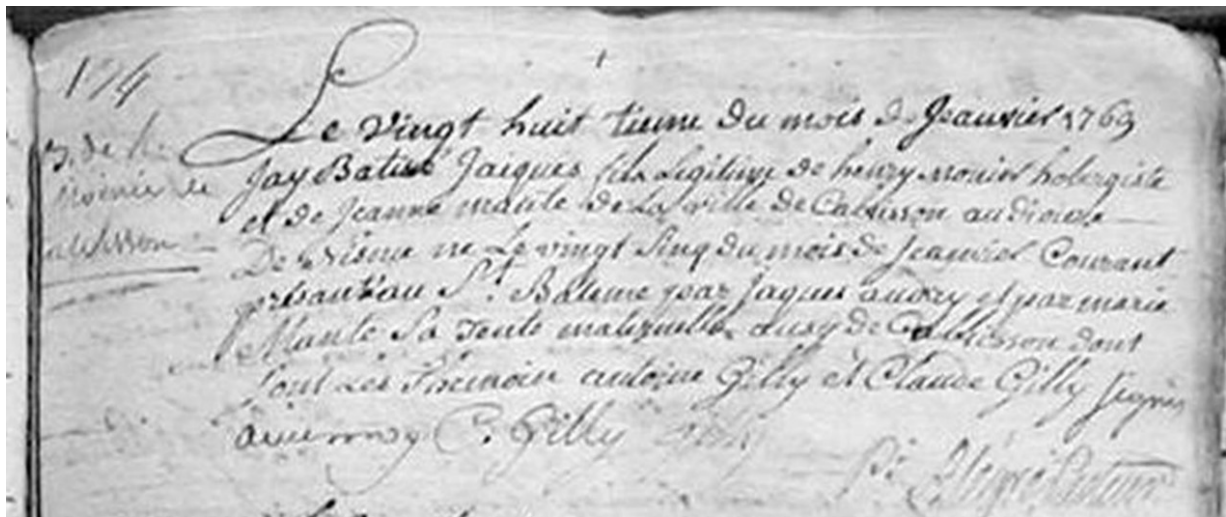 174
B. de h.
monier de
calvisson
Le vingt huit tieme du mois de Jeanvier 1769
Jay Batisé Jacques fils Legitime de henry monier hobergiste
et de Jeanne mante de La ville de Calvisson au dioceze
De Nismes ne Le vingt Sinq du mois de Jeanvier Courant
présanté au St. Bateme par Jaques audry et par marie
Mante Sa Tente maternelle ausy de Calvisson dont
Sont Les Themoin antoine Gilly et Claude Gilly Signés
avec moy C. Gilly Gilly
pr. pasteur